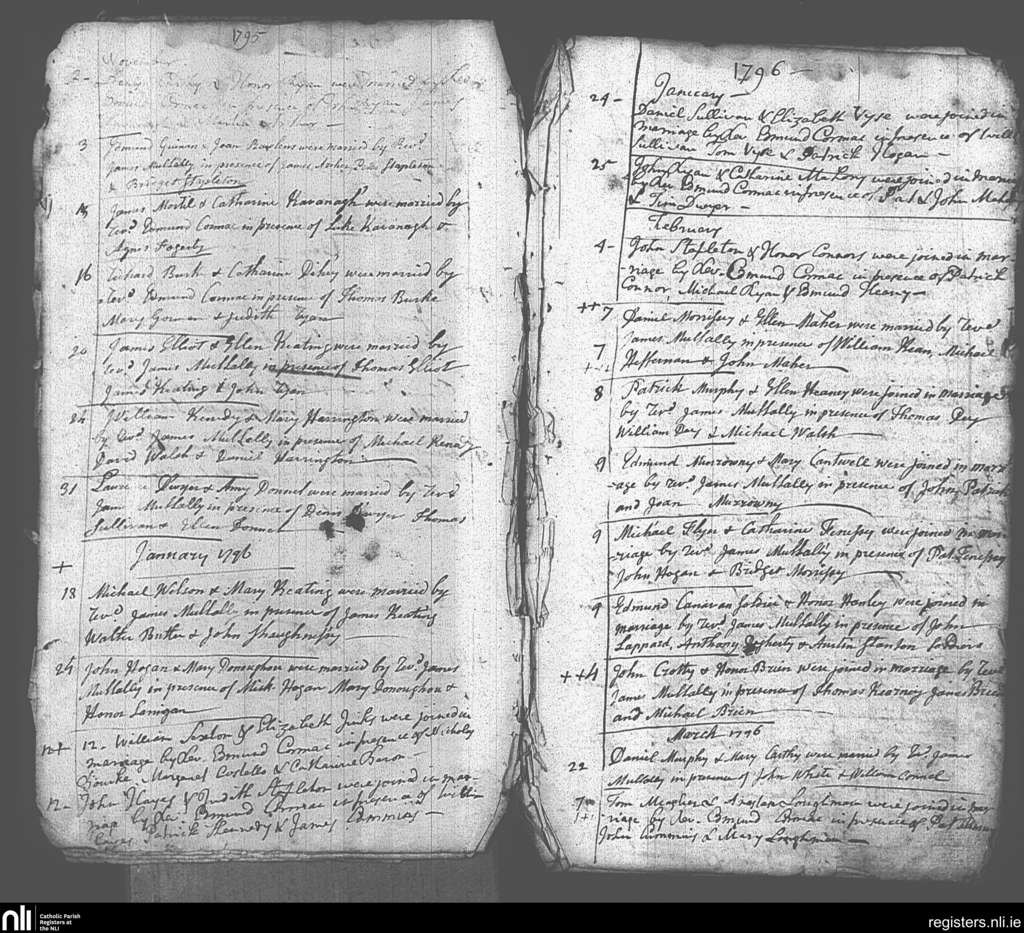 1795
November
2 - Henry & Honor Ryan were
Edmund Cormac in presence of Ryan
3 Edmund Guinan & Joan were married by Revd.
James Mullally in presence of James Peter Stapleton
& Bridget Stapleton
James & Catharine Kavanagh were married by
Revd. Edmund Cormac in presence of Luke Kavanagh &
Agnes Fogerty
16 Richard Burk & Catharine were married by
Revd. Edmund Cormac in presence of Thomas Burke
Mary & Judith Ryan
20 James Elliot & Ellen Keating were married by
Revd. James Mullally in presence of Thomas Elliot
James Keating & John Ryan
24 William Kennedy & Mary Harrington were married
by Revd. James Mullally in presence of Michael Kenedy
David Walsh & Daniel Harrington
31 Laurence Dwyer & Amy Donnel were married by Revd
James Mullally in presence of Denis Dwyer Thomas
Sullivan & Ellen Donnel
January 1796
+
18 Michael Wilson & Mary Keating were married by
Revd. James Mullally in presence of James Keating
Walter Butler & John Shaughnesy
24 John Hogan & Mary Donoughou were married by Revd. James
Mullally in presence of Mick Hogan Mary Donoughou &
Honor Lanigan
12 - William Sexton & Elizabeth Jenks were joined in
marriage by Rev. Edmund Cormac in presence of Nicholas
Bourke Margaret Costello & Catharine Baron -
12 - John Hayes & Judith Stapleton were joined in mar-
riage by Rev. Edmund Cormac in presence of Will:
Hayes Patrick Kennedy & James Cummins -
1796 -
January
24 - Daniel Sullivan & Elizabeth Vyse were joined in
marriage by Rev. Edmund Cormac in presence of Will
Sullivan Tom Vyse & Patrick Hogan -
25 John Ryan & Catharine Mahony were joined in
by Rev Edmund Cormac in presence of Pat & John
& Tim Dwyer -
February
4 - John Stapleton & Honor Connors were joined in mar-
riage by Rev. Edmund Cormac in presence of Patrick
Connor, Michael Ryan & Edmund Heany -
++7 Daniel Morrissy & Ellen Maher were married by Revd
James Mullally in presence of William Kean, Michael
7 Heffernan & John Maher
8 Patrick Murphy & Ellen Heaney were joined in marriage
by Revd. James Mullally in presence of Thomas Day
William Day & Michael Walsh
9 Edmund Murrowny & Mary Cantwell were joined in marri-
age by Revd. James Mullally in presence of John, Patrick
and Joan Murrowny
9 Michael Flyn & Catharine Fenessy were joined in mar-
riage by Revd. James Mullally in presence of Pat Fenessy
John Hogan & Bridget Morrissy
9 Edmund Canavan & Honor Hanley were joined in
marriage by Revd. James Mullally in presence of John
Lappard, Anthony Dogherty & Austin Stanton soldiers
++4 John Crotty & Honor Brien were joined in marriage by Revd
James Mullally in presence of Thomas Kearney James Brien
and Michael Brien
March 1796
22 Daniel Murphy & Mary Carthy were married by Revd. James
Mullally in presence of John White & William Connel
7 Tom Meagher & Loughman were joined in mar-
riage by Rev. Edmund Cormac in presence of Pat
John Cummins & Mary Loughman -
nli
Catholic Parish
Registers at
the NLI
registers.nli.ie